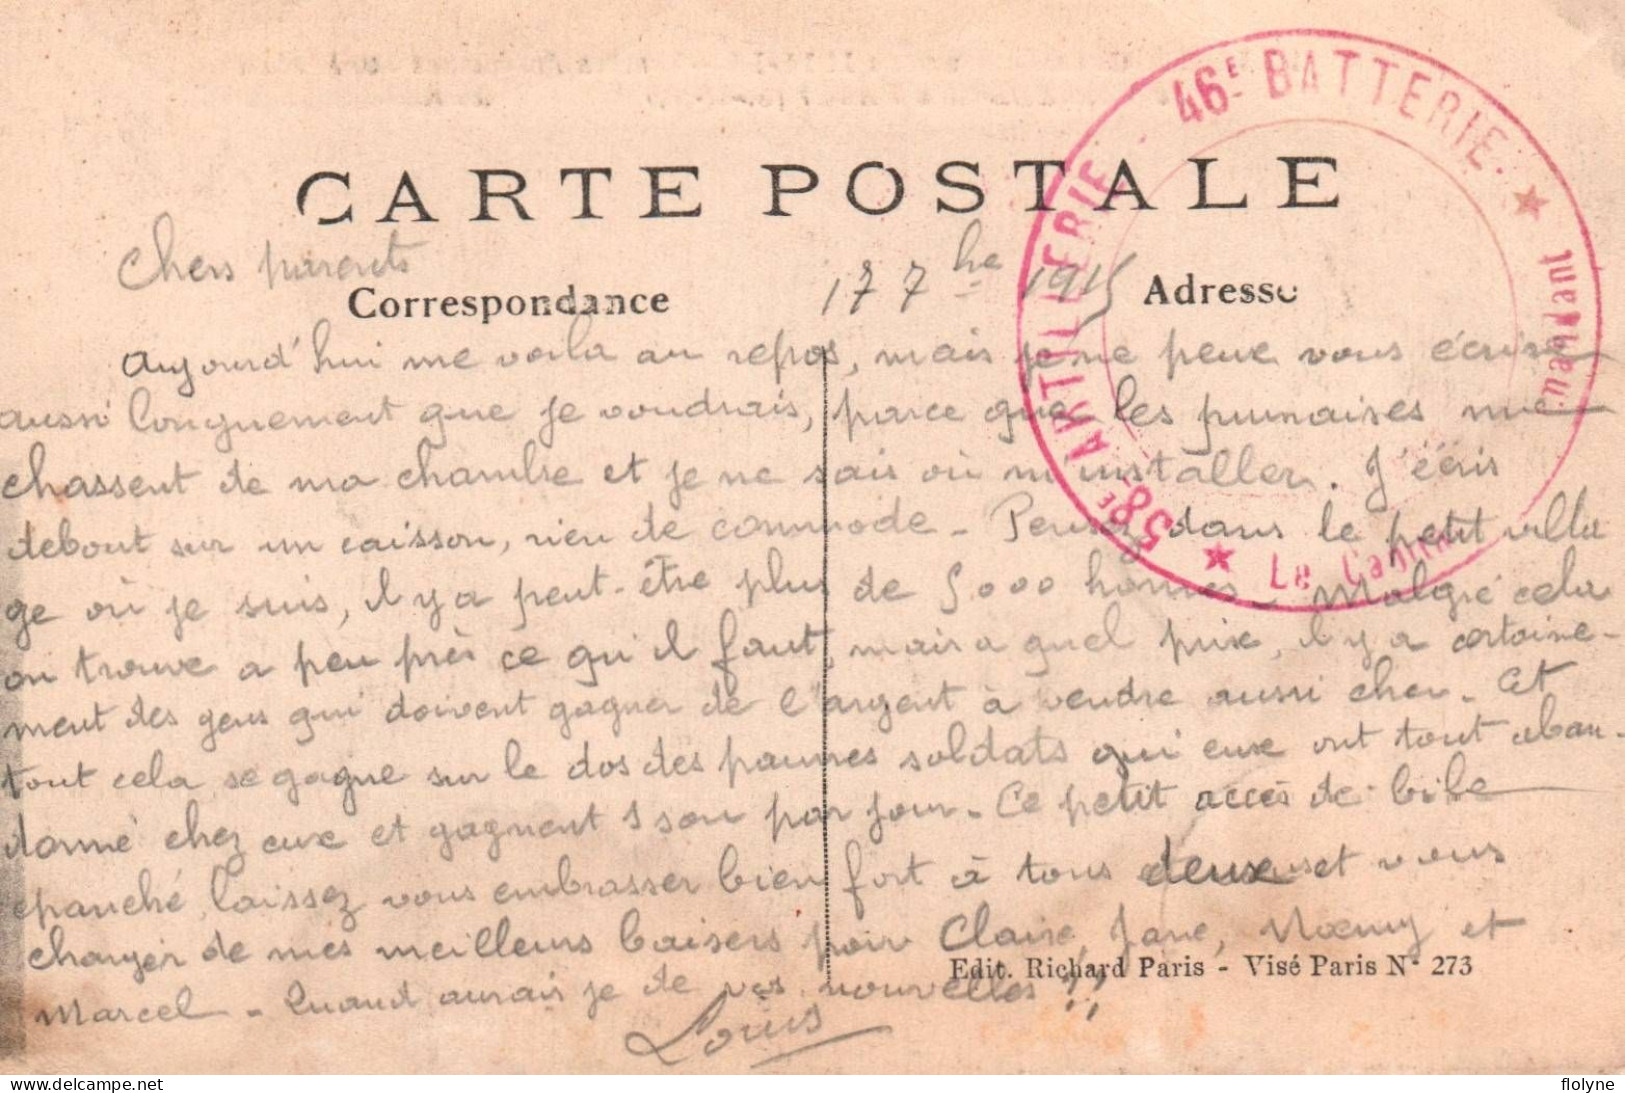 46E BATTERIE
58E ARTILLERIE
Le Capitaine Commandant
CARTE POSTALE
Chers parents
17 7bre 1915
Correspondance
Adresse
Aujourd'hui me voila au repos, mais je ne peux vous écrire
aussi longuement que je voudrais, parce que les punaises me
chassent de ma chambre et je ne sais où m'installer. J'écris
debout sur un caisson, rien de commode - Pensez dans le petit villa
ge où je suis, il y a peut-être plus de 5000 hommes - Malgré cela
on trouve a peu près ce qu'il faut, mais a quel prix, il y a certaine-
ment des gens qui doivent gagner de l'argent à vendre aussi cher. Et
tout cela se gagne sur le dos des pauvres soldats qui eux ont tout aban-
donné chez eux et gagnent 1 sou par jour. Ce petit accès de bile
épanché, laissez vous embrasser bien fort à tous deux et vous
charger de mes meilleurs baisers pour Claire, Jane, Noemy et
Edit. Richard Paris - Visé Paris N° 273
Marcel - Quand aurais je de vos nouvelles !!
Louis
www.delcampe.net
flolyne